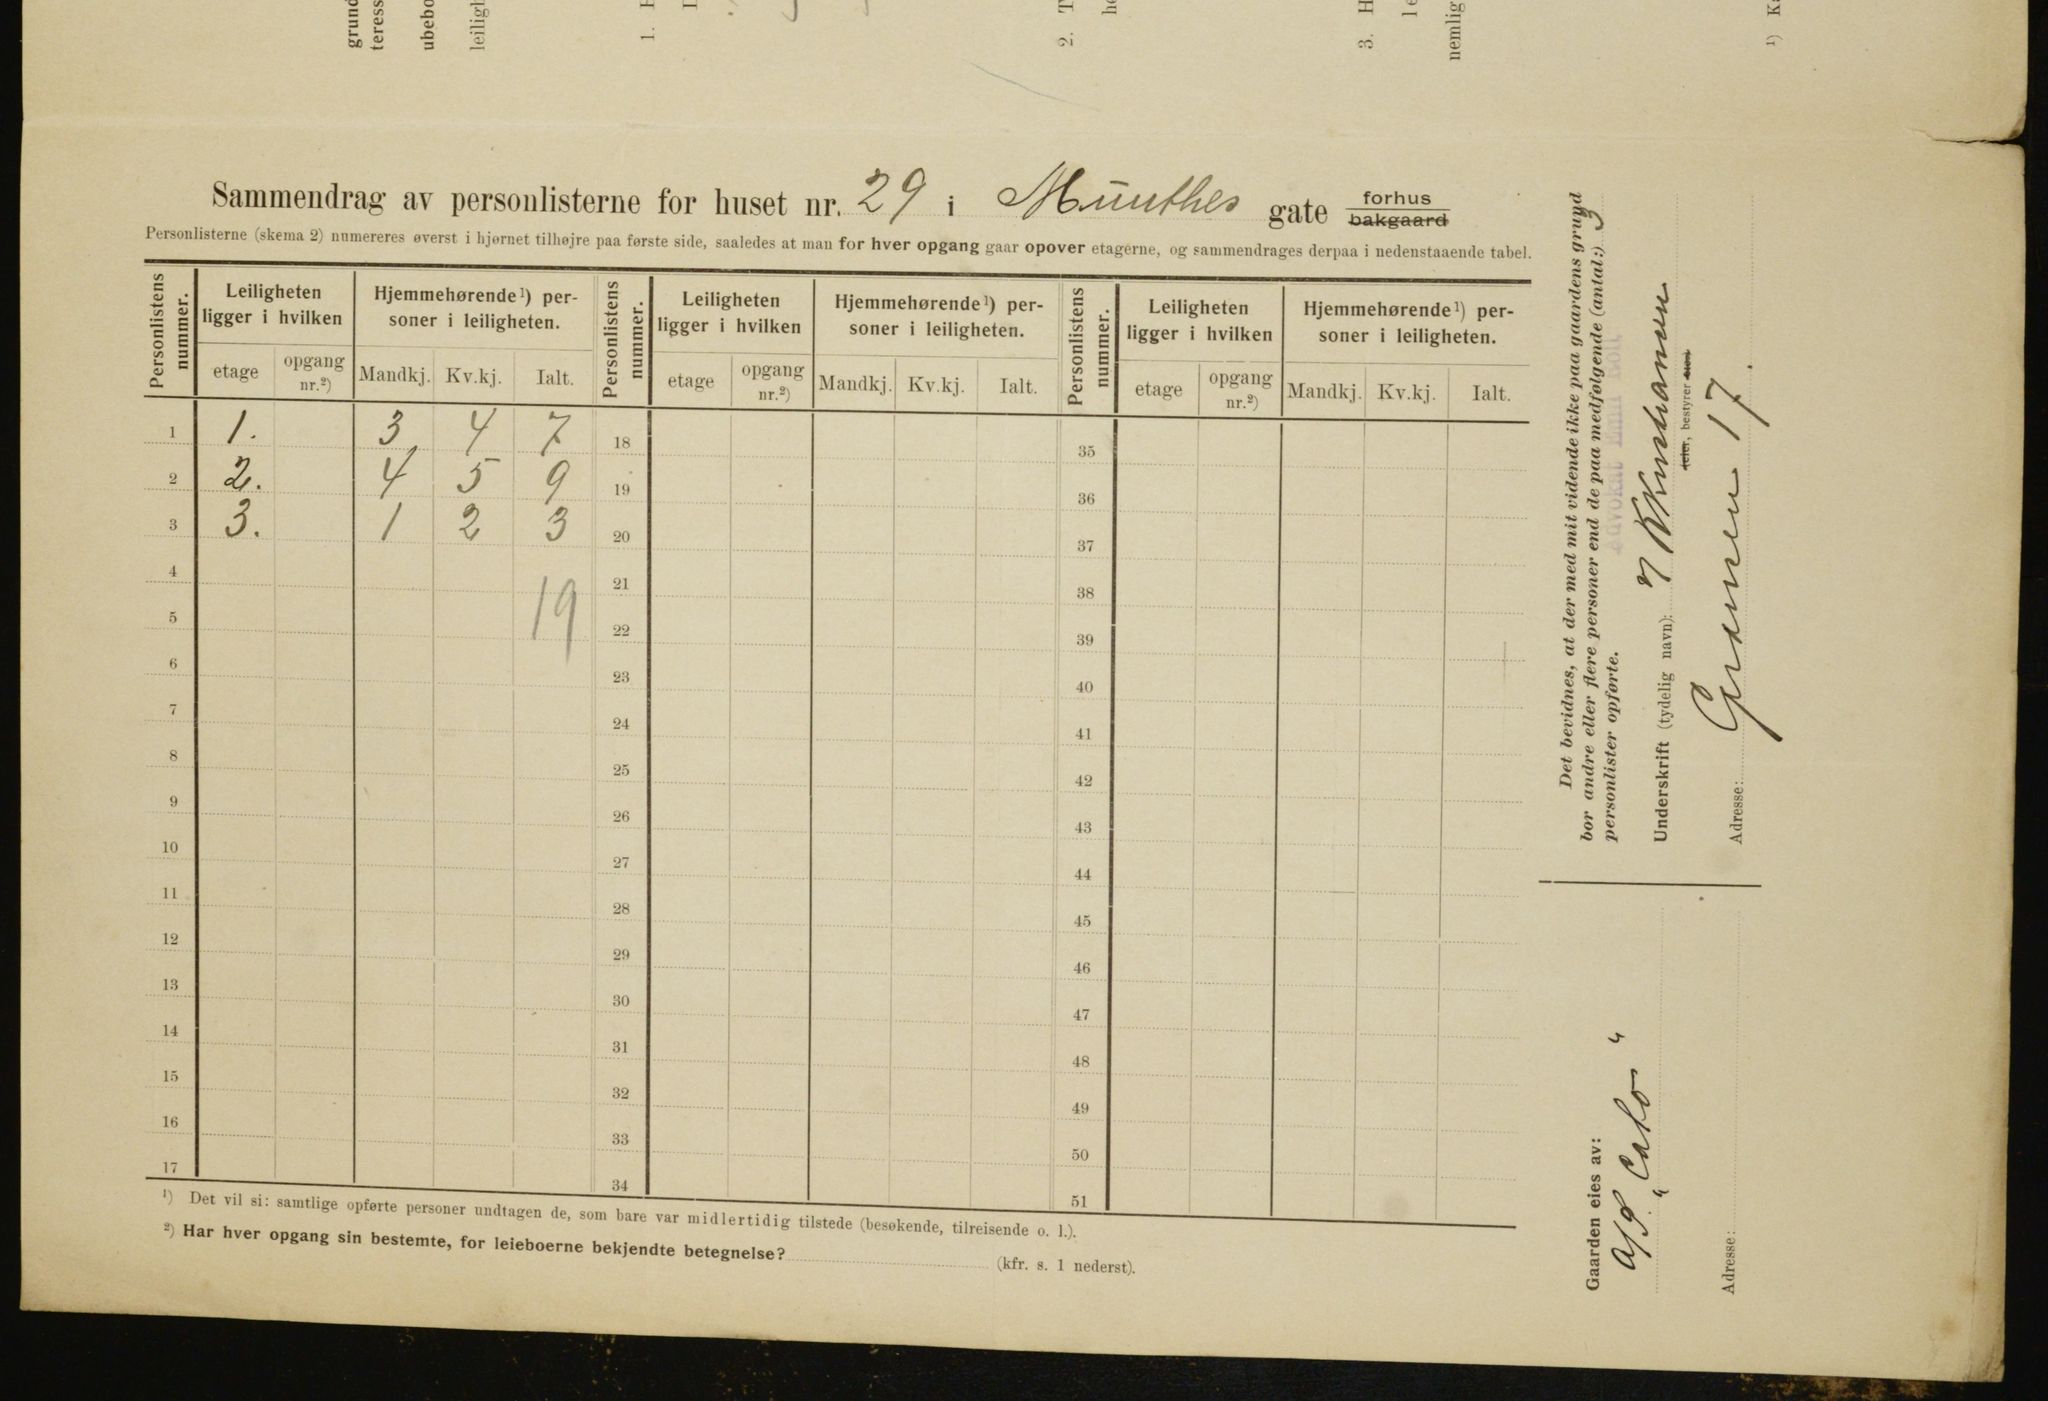 grund
teress
ubebo
leiligh
1.
2. T
he
3. H
le
nemlig
¹) Ka
Sammendrag av personlisterne for huset nr. 29 i Munthes gate forhus bakgaard
Personlisterne (skema 2) numereres øverst i hjørnet tilhøjre paa første side, saaledes at man for hver opgang gaar opover etagerne, og sammendrages derpaa i nedenstaaende tabel.
Personlistens nummer. Leiligheten ligger i hvilken Hjemmehørende¹) personer i leiligheten. Personlistens nummer. Leiligheten ligger i hvilken Hjemmehørende¹) personer i leiligheten. Personlistens nummer. Leiligheten ligger i hvilken Hjemmehørende¹) personer i leiligheten.
etage opgang nr.²) Mandkj. Kv.kj. Ialt. etage opgang nr.²) Mandkj. Kv.kj. Ialt. etage opgang nr.²) Mandkj. Kv.kj. Ialt.
1 1. 3 4 7 18 35
2 2. 4 5 9 19 36
3 3. 1 2 3 20 37
4 21 38
19
5 22 39
6 23 40
7 24 41
8 25 42
9 26 43
10 27 44
11 28 45
12 29 46
13 30 47
14 31 48
15 32 49
16 33 50
17 34 51
¹) Det vil si: samtlige opførte personer undtagen de, som bare var midlertidig tilstede (besøkende, tilreisende o. l.).
²) Har hver opgang sin bestemte, for leieboerne bekjendte betegnelse? (kfr. s. 1 nederst).
Det bevidnes, at der med mit vidende ikke paa gaardens grund
bor andre eller flere personer end de paa medfølgende (antal:) 3
personlister opførte.
Underskrift (tydelig navn):
eier, bestyrer
Adresse: Grænsen 17.
Gaarden eies av:
A/S "Cato"
Adresse: